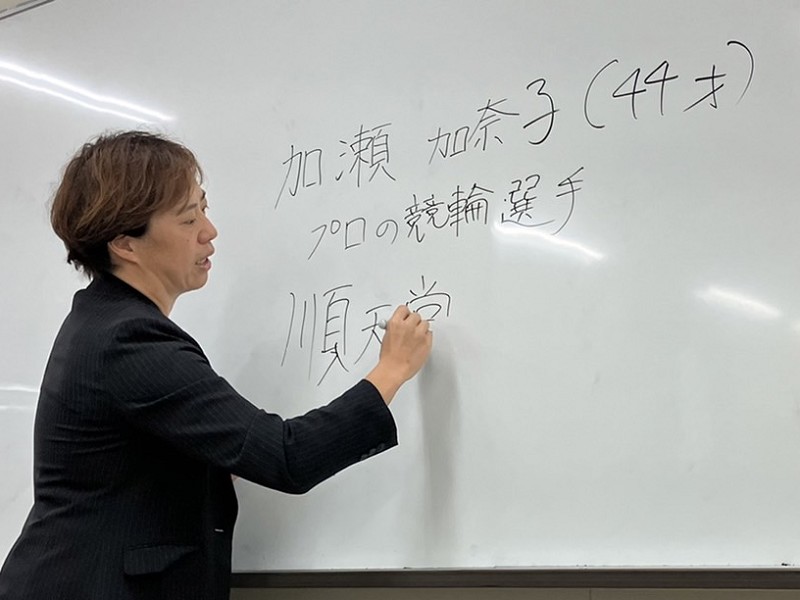 加瀬 加奈子(44才)
プロの競輪選手
順天堂